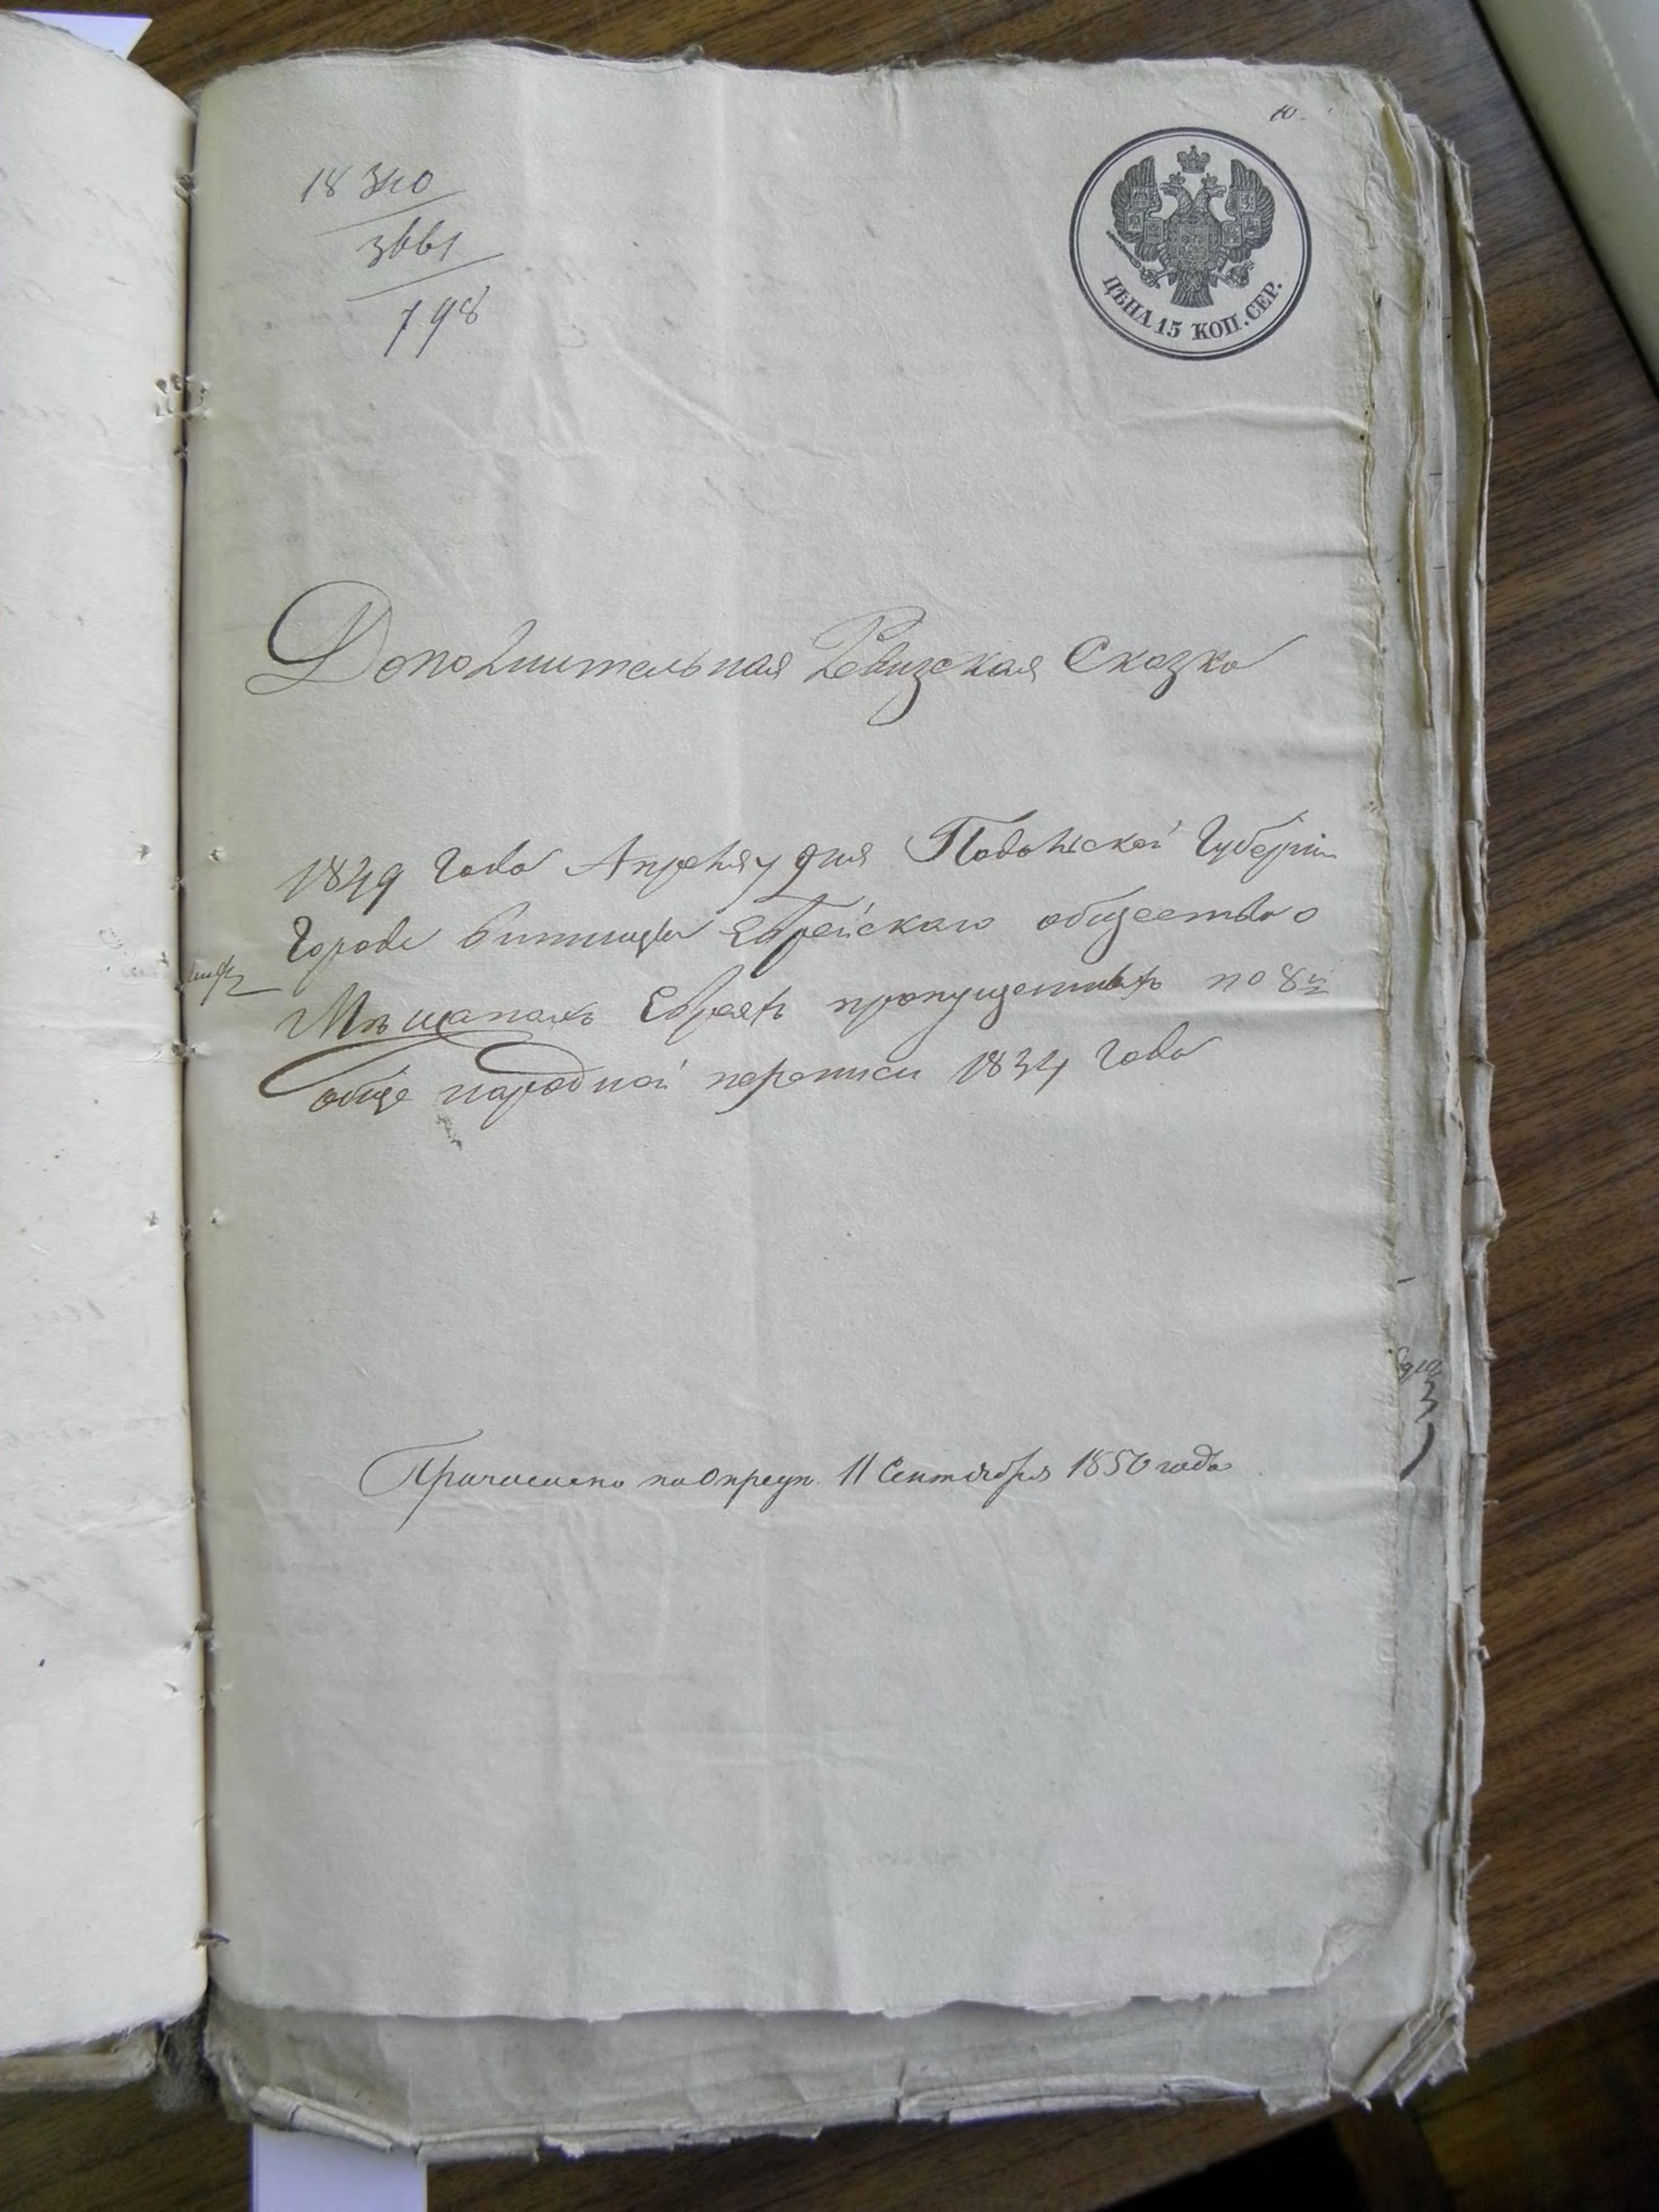 10.
18 340
3661
798
ЦѢНА 15 КОП. СЕР.
Дополнительная Ревизская Сказка
1849 Года Апреля 7 дня Подольской Губерніи
Города Винницы Еврейскаго общества о
Мѣщанахъ Евреяхъ пропущенныхъ по 8й
обще народной переписи 1834 Года
Причислено по Опред. 11 Сентября 1850 года